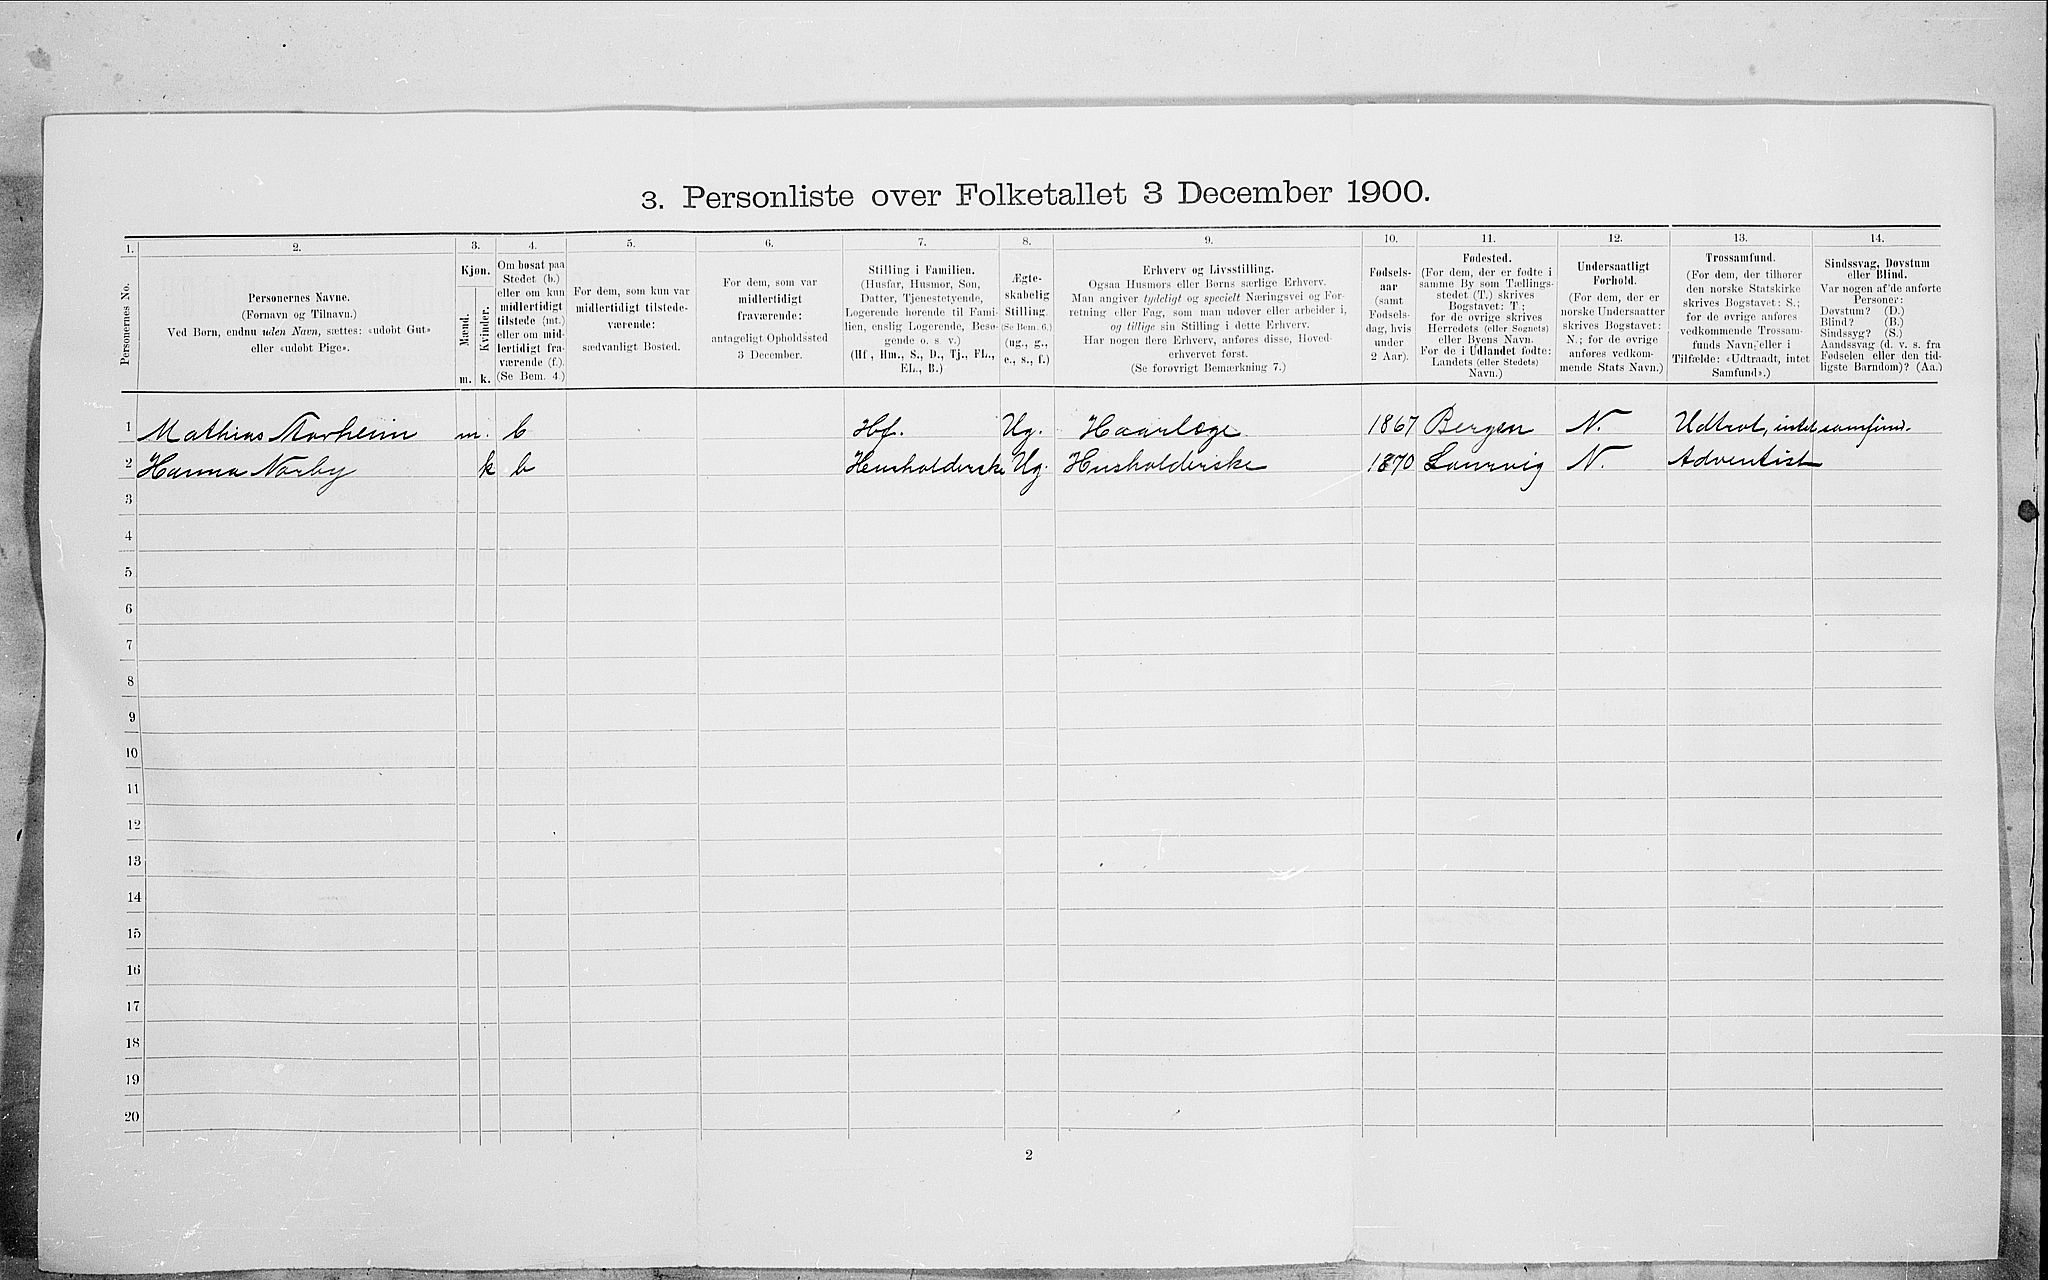 3. Personliste over Folketallet 3 December 1900.
1. 2. 3. 4. 5. 6. 7. 8. 9. 10. 11. 12. 13. 14.
Personernes No.
Personernes Navne.
(Fornavn og Tilnavn.)
Ved Børn, endnu uden Navn, sættes: «udøbt Gut»
eller «udøbt Pige».
Kjøn.
Mænd.
Kvinder.
m. k.
Om bosat paa
Stedet (b.)
eller om kun
midlertidigt
tilstede (mt.)
eller om mid-
lertidigt fra-
værende (f.)
(Se Bem. 4.)
For dem, som kun var
midlertidigt tilstede-
værende:
sædvanligt Bosted.
For dem, som var
midlertidigt
fraværende:
antageligt Opholdssted
3 December.
Stilling i Familien.
(Husfar, Husmor, Søn,
Datter, Tjenestetyende,
Logerende hørende til Fami-
lien, enslig Logerende, Besø-
gende o. s. v.)
(Hf., Hm., S., D., Tj., FL.,
EL., B.)
Ægte-
skabelig
Stilling.
(Se Bem. 6.)
(ug., g.,
e., s., f.)
Erhverv og Livsstilling.
Ogsaa Husmors eller Børns særlige Erhverv.
Man angiver tydeligt og specielt Næringsvei og For-
retning eller Fag, som man udøver eller arbeider i,
og tillige sin Stilling i dette Erhverv.
Har nogen flere Erhverv, anføres disse, Hoved-
erhvervet først.
(Se forøvrigt Bemærkning 7.)
Fødsels-
aar
(samt
Fødsels-
dag, hvis
under
2 Aar).
Fødested.
(For dem, der er fødte i
samme By som Tællings-
stedet (T.) skrives
Bogstavet: T;
for de øvrige skrives
Herredets (eller Sognets)
eller Byens Navn.
For de i Udlandet fødte:
Landets (eller Stedets)
Navn.)
Undersaatligt
Forhold.
(For dem, der er
norske Undersaatter
skrives Bogstavet:
N.; for de øvrige
anføres vedkom-
mende Stats Navn.)
Trossamfund.
(For dem, der tilhører
den norske Statskirke
skrives Bogstavet: S.;
for de øvrige anføres
vedkommende Trossam-
funds Navn, eller i
Tilfælde: «Udtraadt, intet
Samfund».)
Sindssvag, Døvstum
eller Blind.
Var nogen af de anførte
Personer:
Døvstum? (D.)
Blind? (B.)
Sindssyg? (S.)
Aandssvag (d. v. s. fra
Fødselen eller den tid-
ligste Barndom)? (Aa.)
1 Mathias Norheim m. b Hf. Ug. Haarlæge 1867 Bergen N. Udtrat, intet samfund.
2 Hanna Norby k b Husholderske Ug. Husholderske 1870 Laurvig N. Adventist
3
4
5
6
7
8
9
10
11
12
13
14
15
16
17
18
19
20
2